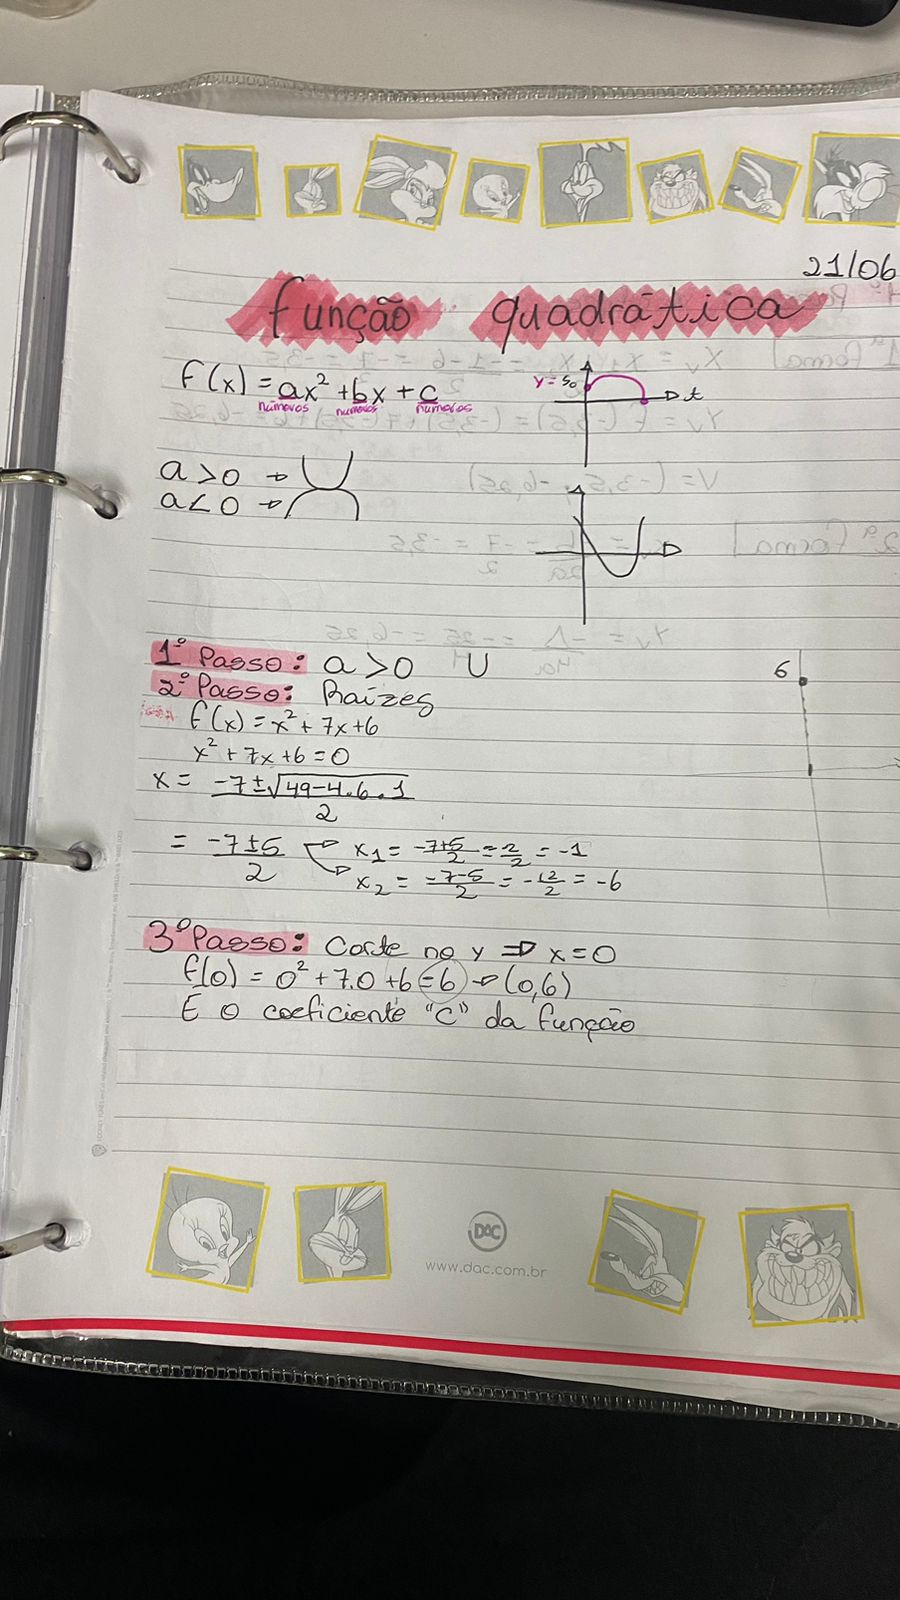 21/06
função quadrática
f(x) = ax² + bx + c
números números números
y = S₀
t
a > 0 →
a < 0 →
1º Passo: a > 0 U
2º Passo: Raízes
6
f(x) = x² + 7x + 6
x² + 7x + 6 = 0
x = -7 ± √49 - 4.6.1
2
= -7 ± 5 x₁ = -7+5 = 2 = -1
2 2 2
x₂ = -7-5 = -12 = -6
2 2
3º Passo: Corte no y ⇒ x = 0
f(0) = 0² + 7.0 + 6 = 6 → (0,6)
É o coeficiente "C" da função
DAC
www.dac.com.br